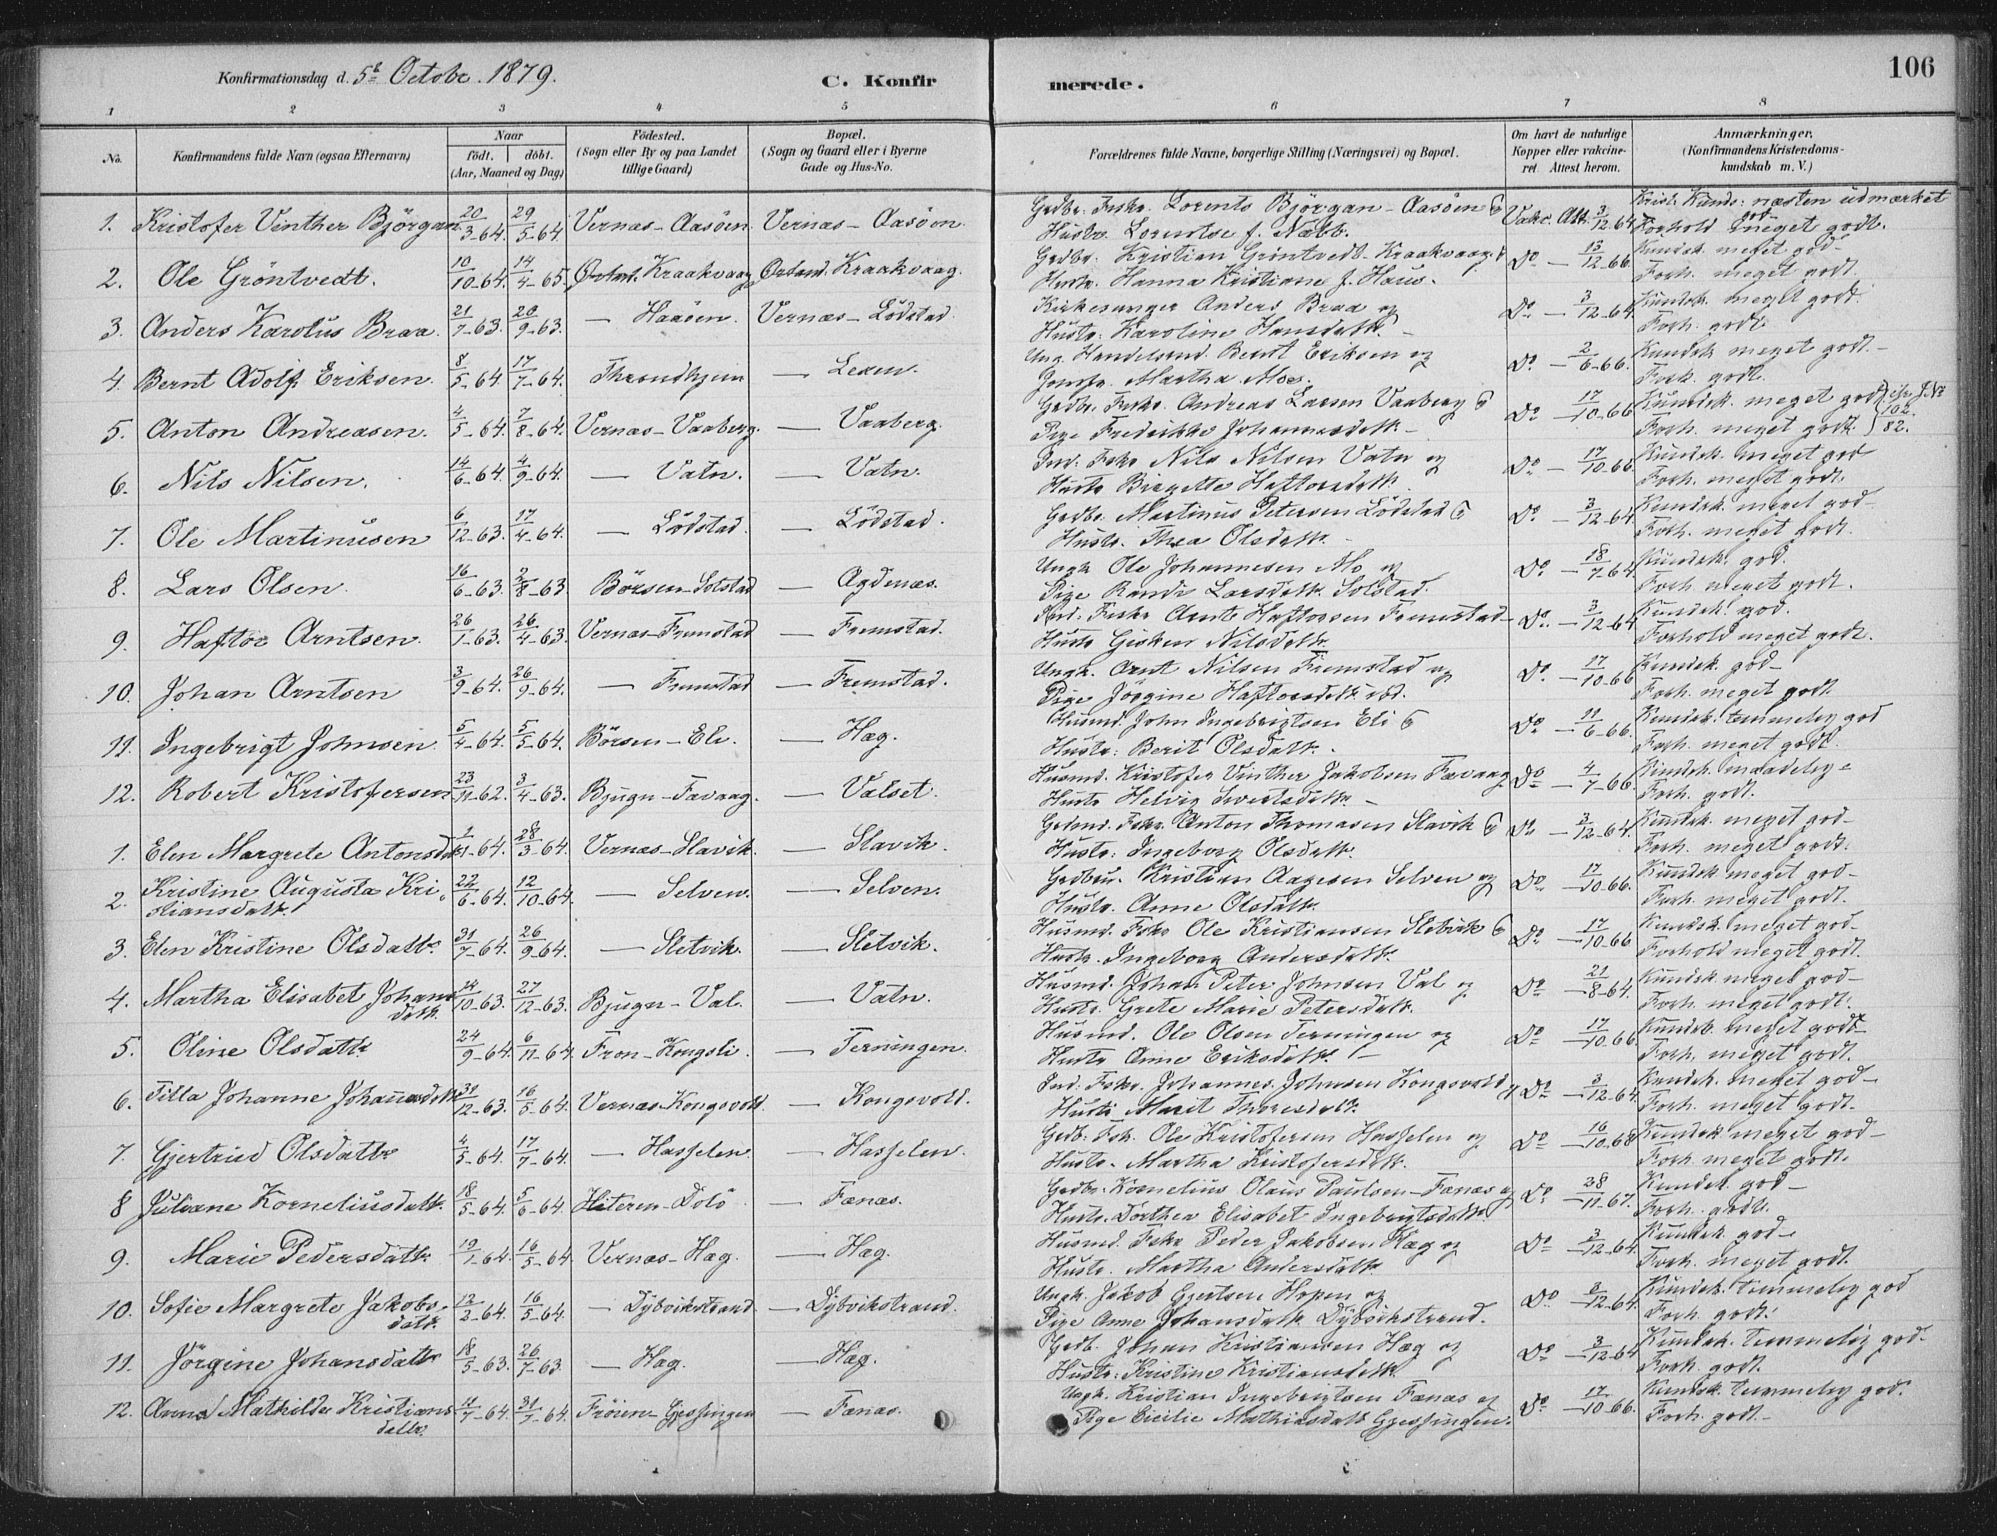 Konfirmationsdag d. 5t Octobr. 1879.
C. Konfir
merede.
106
1 2 3 4 5 6 7 8
No.
Konfirmandens fulde Navn (ogsaa Efternavn)
Naar
födt. döbt.
(Aar, Maaned og Dag)
Födested.
(Sogn eller By og paa Landet
tillige Gaard)
Bopæl.
(Sogn og Gaard eller i Byerne
Gade og Hus-No.
Forældrenes fulde Navne, borgerlige Stilling (Næringsvei) og Bopæl.
Om havt de naturlige
Kopper eller vakcine-
ret. Attest herom.
Anmærkninger.
(Konfirmandens Kristendoms-
kundskab m. V.)
1. Kristofer Vinther Björgan 20/3-64. 29/5-64. Vernæs-Aasöen Vernæs-Aasöen. Lorents Björgan-Aasöen Vakc. Att. 3/12 64 Krist. Kunds: næsten udmærket
Hustr. Lorentse f. Nebb. Forhold meget godt.
2. Ole Gröntvedt. 10/10-64. 14/4-65. Örland. Kraakvaag Örland. Kraakvaag. Grdbr. Kristian Gröntvedt-Kraakvaag Do - 13/12-66. Kundsk. meget god-
Hustr. Hanna Kristiane f. Hous. Forh. meget godt.
3. Anders Karolus Braa. 21/7-63. 20/9-63. — Haasen. Vernæs-Lödstad. Kirkesanger Anders Braa og Do - 3/12-64. Kundsk. meget godt.
Hustr. Karoline Hansdatt. - Forh. godt.
4. Bernt Adolf Eriksen. 8/5-64. 17/7-64. Throndhjem — Lexen. Ung. Handelsmd. Bernt Eriksen og Do - 2/6-66. Kundsk. meget god.-
Jomfr. Martha Moe. Forh. godt.
5. Anton Andreasen. 4/5-64. 7/8-64. Vernæs-Vaaberg. — Vaaberg. Grdbr. Fskr. Andreas Larsen Vaaberg Do - 17/10-66 Kundsk. meget god. J. No 102.
Pige Fredrikke Johannesdatt- Forh. meget godt. 82.
6. Nils Nilsen. 14/6-64. 4/9-64. — Vatn. — Vatn. Ind. Fskr Nils Nilsen Vatn og Do - 17/10-66. Kundsk. meget god
Hustr Bergette Haftorsdatt. Forh. meget godt.
7. Ole Martinusen 6/12-63. 17/4-64. — Lödstad. — Lödstad. Grdbr. Martinus Petersen Lödstad Do - 3/12-64. Kundsk. meget god-
Hustr. Thea Olsdatt. Forh. meget godt.
8. Lars Olsen. 16/6-63. 2/8-63 Börsen-Solstad — Agdenæs. Ungk Ole Johannesen Mo og Do. - 18/7-64. Kundsk. god.
Pige Randi Larsdatt. Solstad. Forh. meget godt.
9. Haftor Arntsen. 26/1-63. 26/4-63. Vernæs-Fremstad — Fremstad. Ind. Fiskr Arnt Haftorsen Fremstad- Do. - 3/12-64 Kundsk. god.
Hustr Gesken Nilsdatt. Forhold meget godt.
10. Johan Arntsen 3/9-64. 26/9-64. — Fremstad — Fremstad. Ungk. Arnt Nilsen Fremstad og Do. - 17/10-66 Kundsk. god-
Pige Jörgine Haftorsdatt. ibd. Forh. meget godt.
11. Ingebrigt Johnsen. 5/4-64. 5/5-64. Börsen-Eli. — Hæg. Husmd. John Ingebrigtsen Eli Do - 11/6-66. Kundsk. temmelig god
Hustr: Berit Olsdatt. Forh. meget godt.
12. Robert Kristofersen 23/11-62. 3/4-63. Bjugn-Favaag. — Valset. Husmd. Kristofer Vinther Jakobsen Favaag Do - 4/7-66. Kundsk. maadelig-
Hustr Helvig Sivertsdatt. - Forh. godt.
1. Elen Margrete Antonsdatt 1/1-64. 28/3-64. Vernæs-Slavik. — Slavik. Grdmd. Fskr. Anton Thomasen Slavik Do - 3/12-64. Kundsk. meget god-
Hustr: Ingeborg Olsdatt. Forh. meget godt.
2. Kristine Augusta Kri- 22/6-64. 12/10-64. — Selven. — Selven. Grdbru. Kristian Aagesen Selven og Do - 17/10-66. Kundsk. meget god-
stiansdatt. Hustr. Anne Olsdatt. Forh. meget godt.
3. Elen Kristine Olsdatt. 31/7-64. 26/9-64. — Sletvik. — Sletvik. Husmd. Fskr Ole Kristiansen Sletvik Do - 17/10-66 Kundsk. meget god-
Hustr. Ingeborg Andersdatt. Forhold meget godt.
4. Martha Elisabet Johans 14/10-63. 27/12-63. Bjugn-Val. — Vatn. Husmd. Johan Peter Johnsen Val og Do - 21/8-64. Kundsk. meget god-
datt. Hustr Grete Marie Petersdatt. Forh. meget godt.
5. Oline Olsdatt 24/9-64. 6/11-64. Fron-Kongsli. — Terningen. Husmd. Ole Olsen Terningen og Do - 17/10-66 Kundsk. meget god-
Hustr Anne Eriksdatt. Forh. meget godt.
6. Tilla Johanne Johannesdatt 31/12-63. 16/5-64. Vernæs-Kongsvold. — Kongsvold. Ind. Fskr. Johannes Johnsen Kongsvold og Do - 3/12-64. Kundsk. meget god-
Hustr Marit Thoresdatt. Forh. meget godt.
7. Gjertrud Olsdatt 4/5-64. 17/7-64. — Hasselen. — Hasselen. Grdb: Fsk. Ole Kristofersen Hasselen og Do - 16/10-68 Kundsk. meget god-
Hustr. Martha Kristofersdatt. Forh. meget godt.
8 Juliane Korneliusdatt. 18/5-64. 5/6-64. Hiteren-Dolö — Fænæs. Grdbr. Kornelius Olaus Paulsen-Fænæs og Do - 28/11-67. Kundsk. god-
Hustr. Dorthea Elisabet Ingebrigtsdatt. Forh. godt.
9. Marie Pedersdatt. 19/1-64. 16/5-64. Vernæs-Hæg. — Hæg. Husmd. Fskr Peder Jakobsen Hæg og Do - 3/12-64. Kundsk. god-
Hustr. Martha Andersdatt. Forh. meget godt.
10. Sofie Margrete Jakobs- 12/2-64. 16/5-64. — Dybvikstrand — Dybvikstrand. Ungk. Jakob Gjertsen Hopen og Do - 3/12-64. Kundsk. temmelig god
datt. Pige Anne Johansdatt. Dybvikstrand. Forh. godt.
11. Jörgine Johansdatt 18/5-63. 26/7-63. — Hæg. — Hæg. Grdb. Johan Kristiansen Hæg og Do - 3/12-64 Kundsk. temmelig god.
Hustr: Kristine Kristiansdatt. Forh. godt.
12. Anna Mathilde Kristians 11/7-64. 31/7-64. Fröien-Gjessingen — Fænæs. Ungk. Kristian Ingebrigtsen Fænæs og Do - 17/10-66. Kundsk. temmelig god.
datt. Pige Cicilie Mathiasdatt Gjessingen. Forh. godt.-